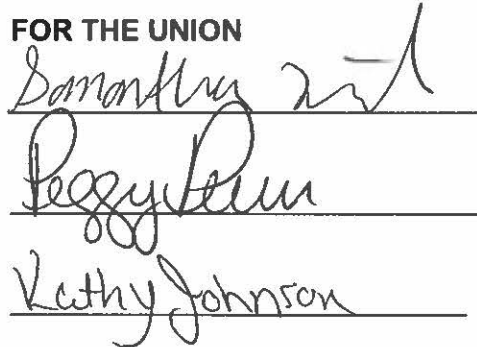 FOR THE UNION
Samantha
Peggy
Kathy Johnson